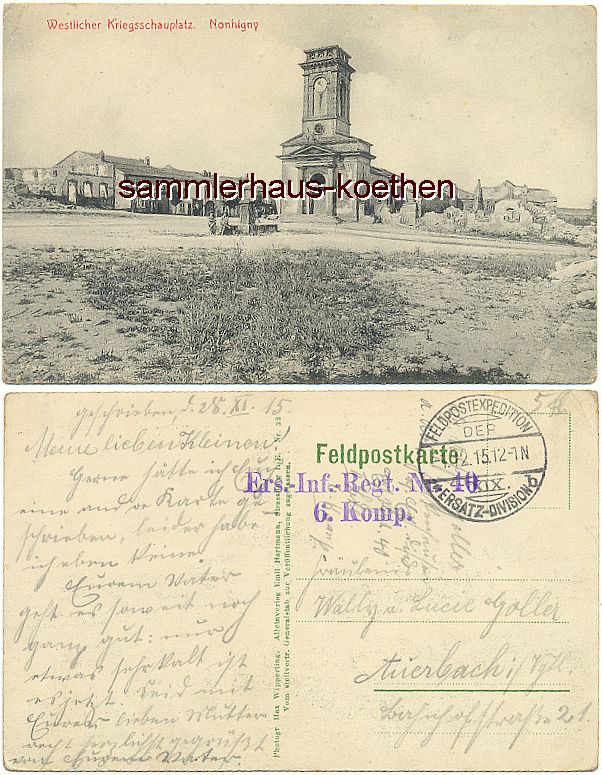 Westlicher Kriegsschauplatz. Nonhigny
sammlerhaus-koethen
geschrieben, d. 28. XI. 15.
Meine lieben Kleinen!
Gerne hätte ich Euch
eine andre Karte ge
schrieben, leider habe
ich eben keine.
Eurem Vater
geht es soweit noch
ganz gut: nur
etwas sehr kalt ist
es jetzt. Seid mit
Eurer lieben Mutter
recht herzlichst gegrüßt
von Eurem Vater.
Photogr. Max Wipperling. Alleinverlag Emil Hartmann, Strassburg i. E. Nr. 32
Vom stellvertr. Generalstab zur Veröffentlichung zugelassen.
Feldpostkarte
FELDPOSTEXPEDITION
DER
12.15.12-1N
XIX.
ERSATZ-DIVISION
b
Ers.-Inf.-Regt. Nr. 40
6. Komp.
Fräuleins
Wally u. Lucie Goller
Auerbach i/Vgtl.
Bahnhofstraße 21.